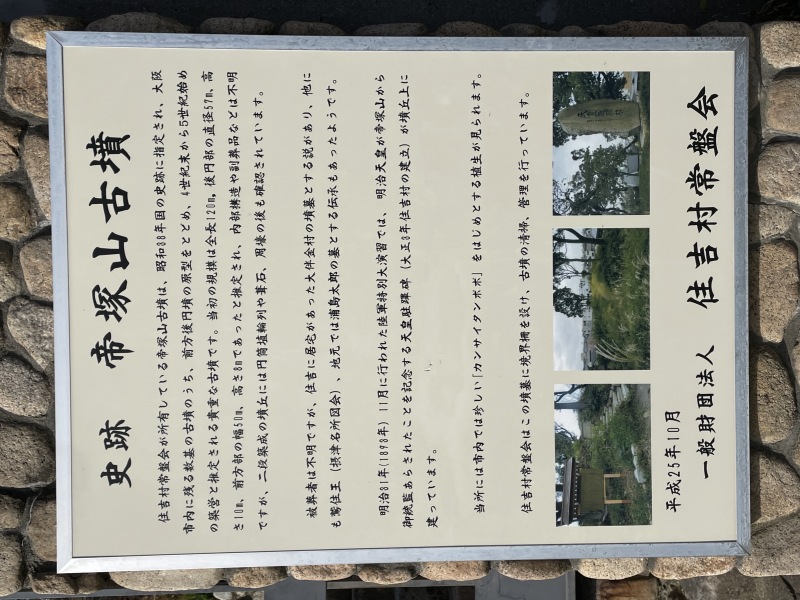 史跡　帝塚山古墳
住吉村常盤会が所有している帝塚山古墳は、昭和38年国の史跡に指定され、大阪
市内に残る数基の古墳のうち、前方後円墳の原型をとどめ、4世紀末から5世紀始め
の築営と推定される貴重な古墳です。当初の規模は全長120m，後円部の直径57m、高
さ10m、前方部の幅50m、高さ8mであったと推定され、内部構造や副葬品などは不明
ですが、二段築成の墳丘には円筒埴輪列や葺石、周壕の後も確認されています。
被葬者は不明ですが、住吉に居宅があった大伴金村の墳墓とする説があり、他に
も鷲住王（摂津名所図会）、地元では浦島太郎の墓とする伝承もあったようです。
明治31年(1898年) 11月に行われた陸軍特別大演習では、明治天皇が帝塚山から
御統監あらされたことを記念する天皇駐蹕碑（大正3年住吉村の建立）が墳丘上に
建っています。
当所には市内では珍しい「カンサイタンポポ」をはじめとする植生が見られます。
住吉村常盤会はこの墳墓に境界柵を設け、古墳の清掃、管理を行っています。
平成25年10月
一般財団法人　住吉村常盤会